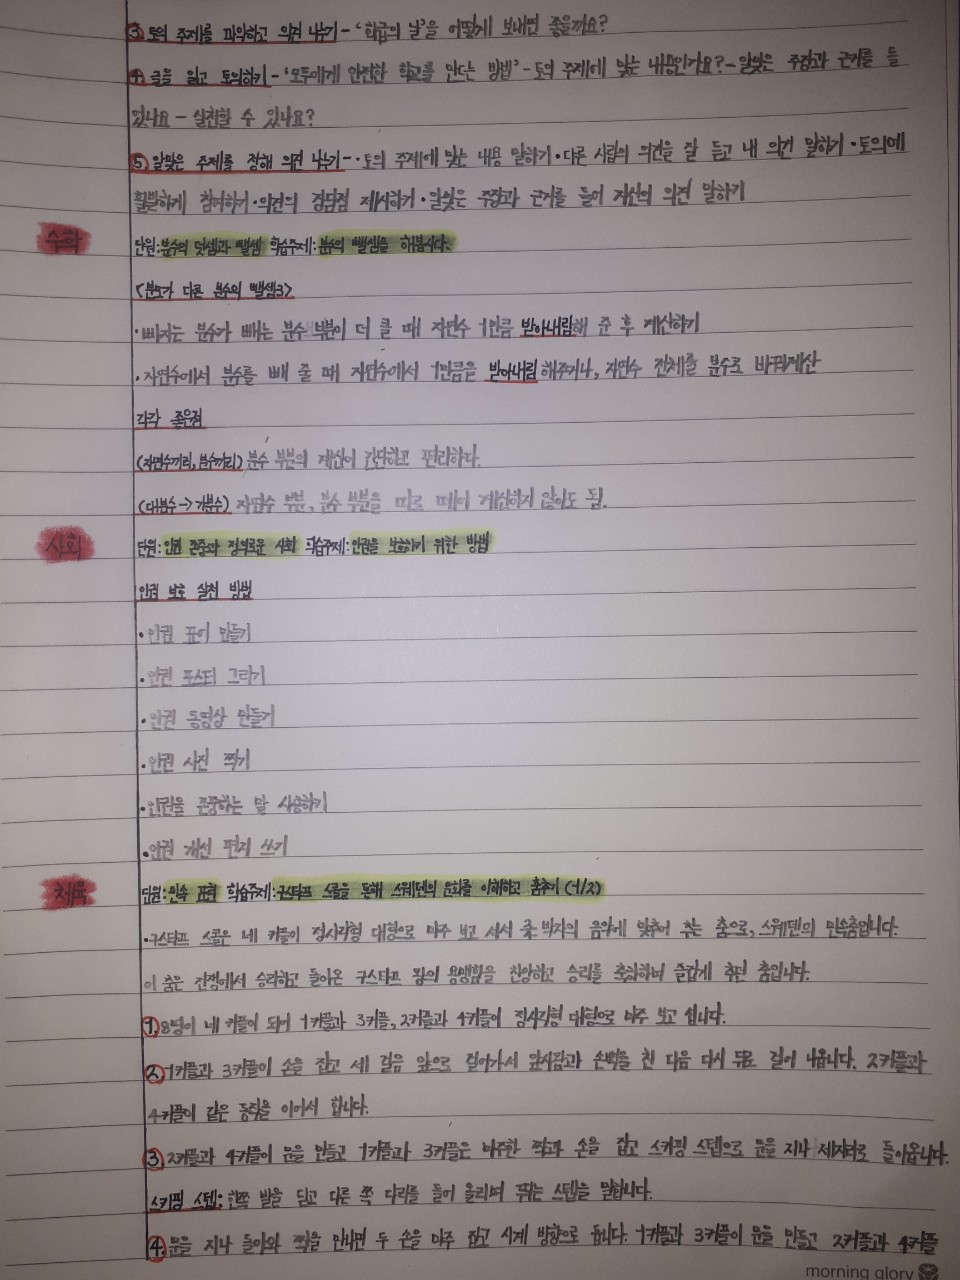 ③ 토의 주제를 파악하고 의견 나누기 - '학급의 날'을 어떻게 보내면 좋을까요?
④ 글을 읽고 토의하기 - '모두에게 안전한 학교를 만드는 방법' - 토의 주제에 맞는 내용인가요? - 알맞은 주장과 근거를 들
었나요 - 실천할 수 있나요?
⑤ 알맞은 주제를 정해 의견 나누기 - ·토의 주제에 맞는 내용 말하기 ·다른 사람의 의견을 잘 듣고 내 의견 말하기 ·토의에
활발하게 참여하기 ·의견의 장단점 제시하기 ·알맞은 주장과 근거를 들어 자신의 의견 말하기
수학 단원: 분수의 덧셈과 뺄셈 학습주제: 분수의 뺄셈을 해봅시다.
<분모가 다른 분수의 뺄셈3>
·빠지는 분수가 빼는 분수 부분이 더 클 때 자연수 1만큼 받아내림해 준 후 계산하기
·자연수에서 분수를 빼 줄 때 자연수에서 1만큼을 받아내림 해주거나, 자연수 전체를 분수로 바꿔계산
각각 좋은점
(자연수끼리, 분수끼리) 분수 부분의 계산이 간단하고 편리하다.
(대분수→가분수) 자연수 부분, 분수 부분을 따로 떼어 계산하지 않아도 됨.
사회 단원: 인권 존중과 정의로운 사회 학습주제: 인권을 보호하기 위한 방법
인권 보호 실천 방법
·인권 표어 만들기
·인권 포스터 그리기
·인권 동영상 만들기
·인권 사진 찍기
·인권을 존중하는 말 사용하기
·인권 개선 편지 쓰기
체육 단원: 민속 표현 학습주제: 구스타프 스콜을 통해 스웨덴의 문화를 이해하고 춤추기 (1/2)
·구스타프 스콜은 네 커플이 정사각형 대형으로 마주 보고 서서 박자의 음악에 맞추어 추는 춤으로, 스웨덴의 민속춤입니다.
이 춤은 전쟁에서 승리하고 돌아온 구스타프 왕의 용맹함을 찬양하고 승리를 축하하며 즐겁게 추던 춤입니다.
①. 8명이 네 커플이 되어 1커플과 3커플, 2커플과 4커플이 정사각형 대형으로 마주 보고 섭니다.
② 1커플과 3커플이 손을 잡고 세 걸음 앞으로 걸어가서 앞사람과 손뼉을 친 다음 다시 뒤로 걸어 나옵니다. 2커플과
4커플이 같은 동작을 이어서 합니다.
③. 2커플과 4커플이 문을 만들고 1커플과 3커플은 마주한 짝과 손을 잡고 스키핑 스텝으로 문을 지나 제자리로 돌아옵니다.
스키핑 스텝: 한쪽 발을 딛고 다른 쪽 다리를 들어 올리며 뛰는 스텝을 말합니다.
④. 문을 지나 돌아와 짝을 만나면 두 손을 마주 잡고 시계 방향으로 돕니다. 1커플과 3커플이 문을 만들고 2커플과 4커플
morning glory